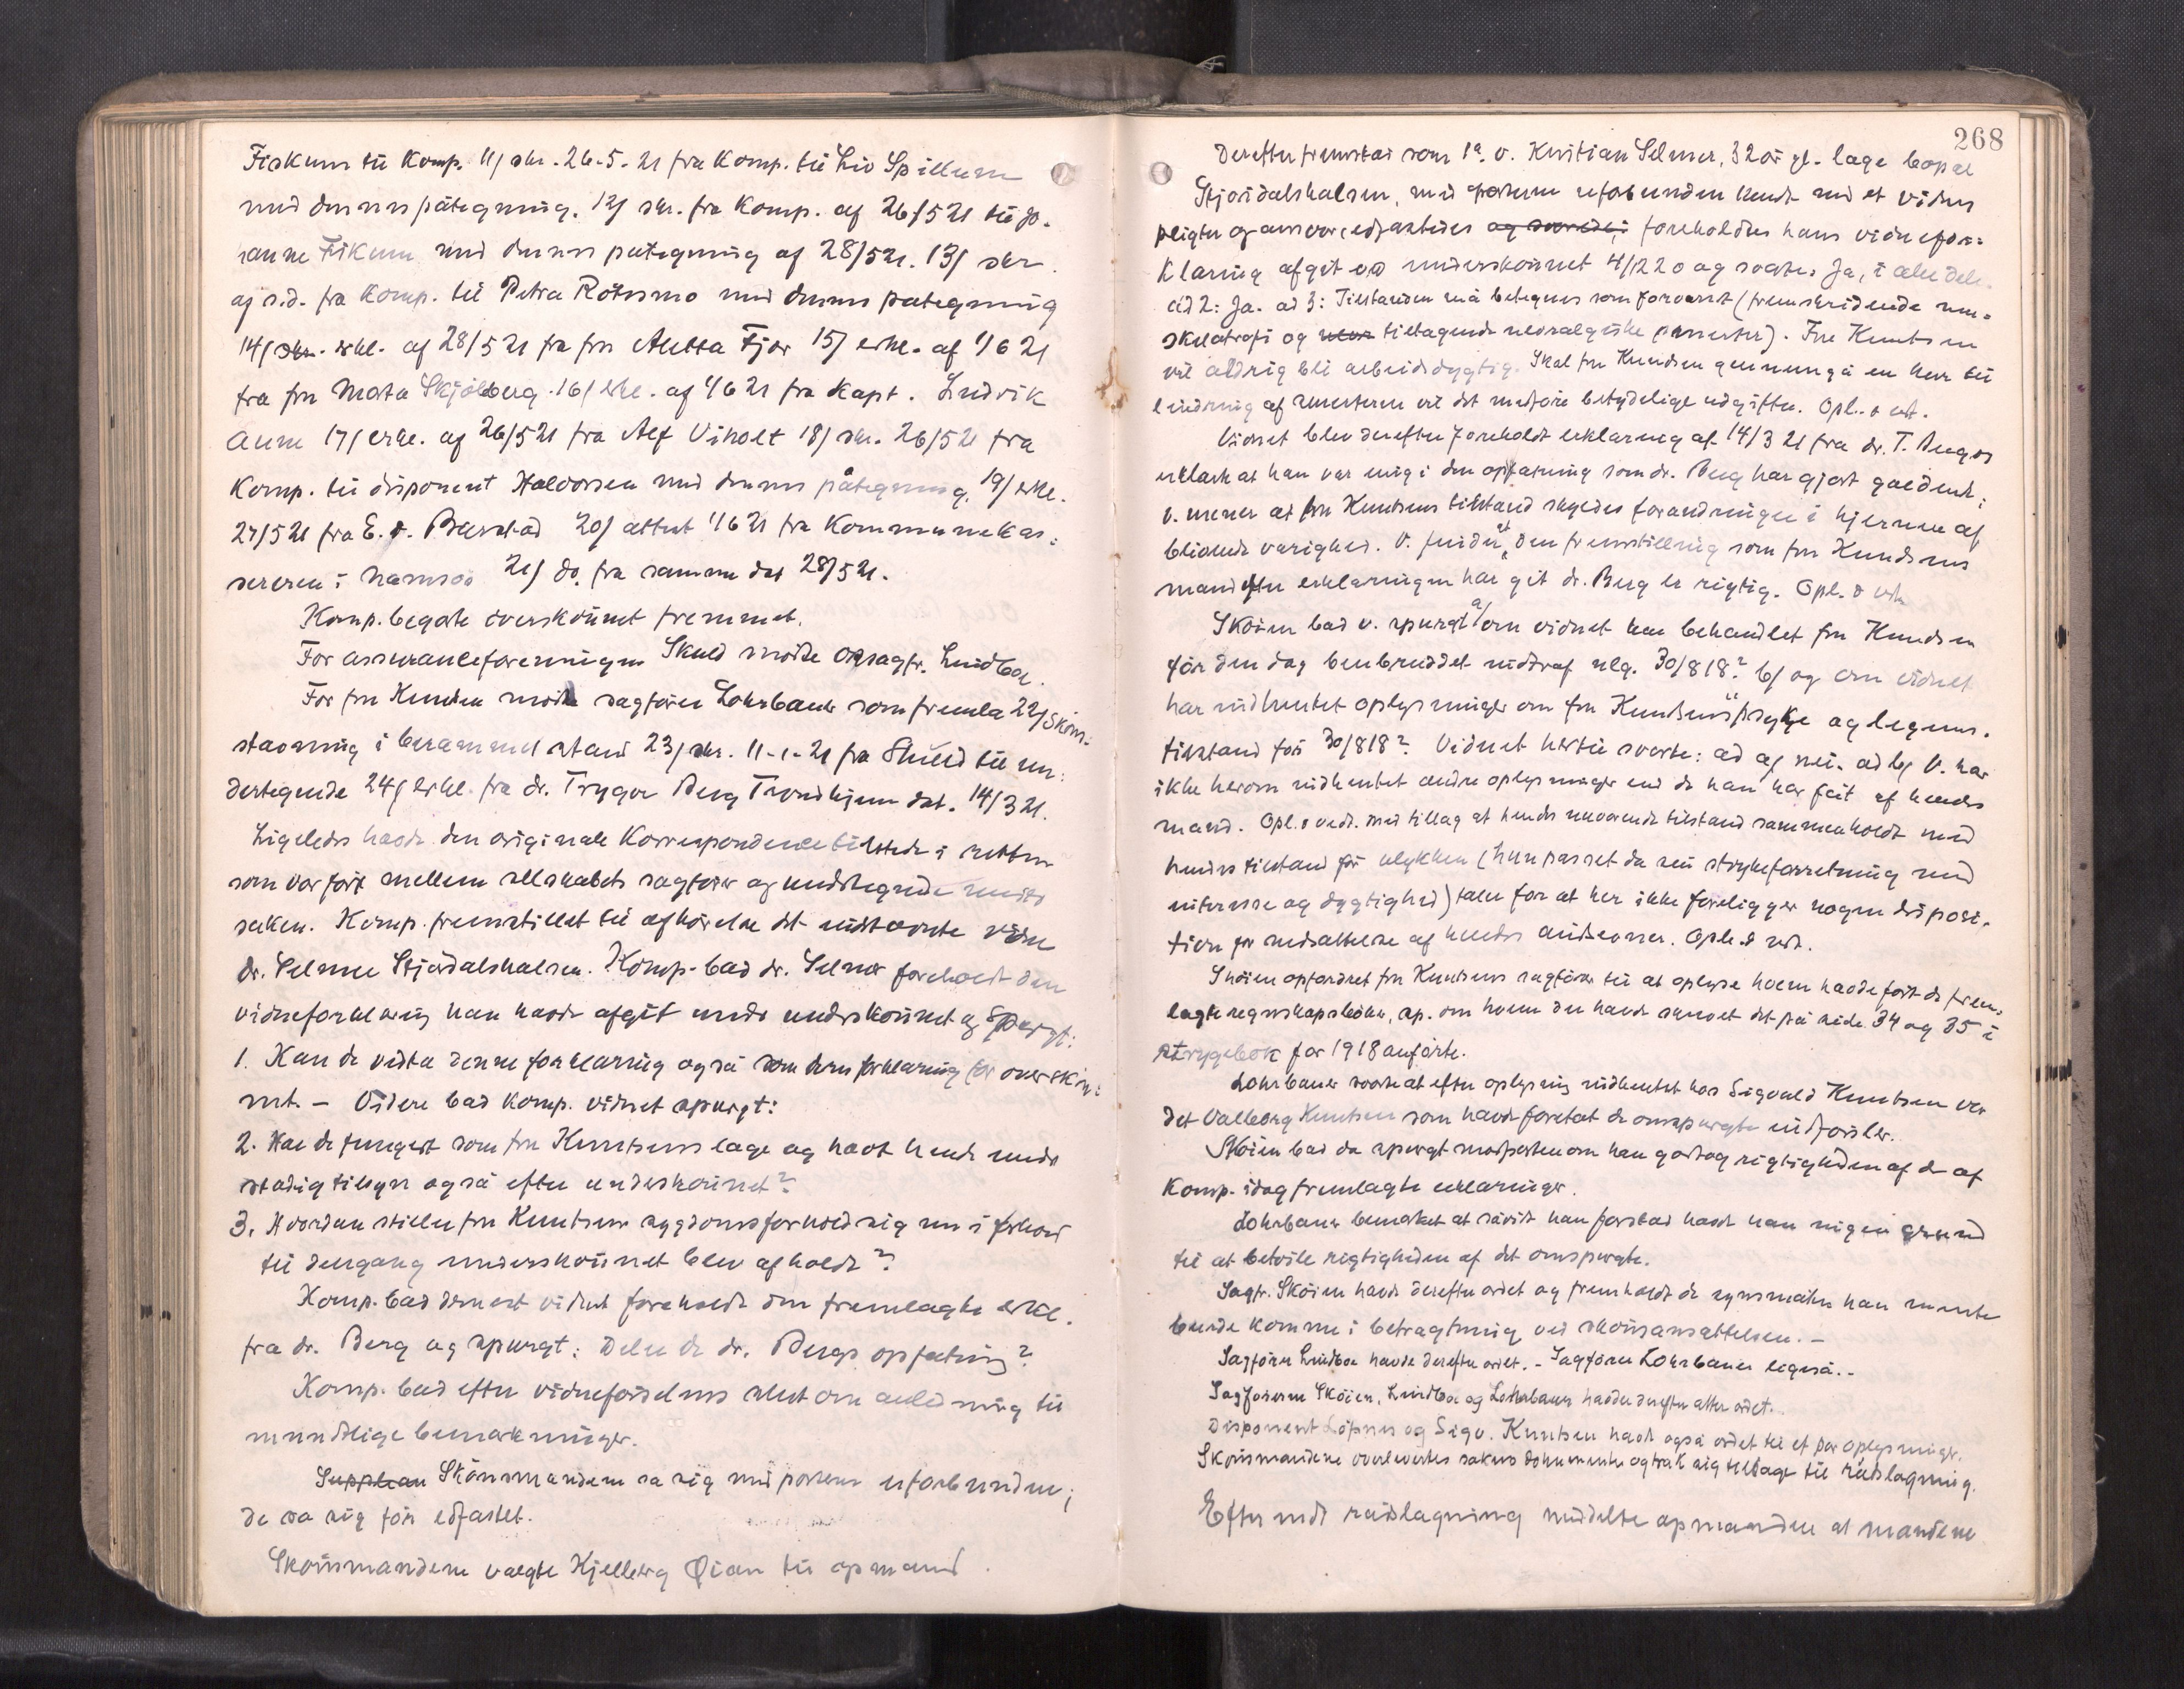 Fiskum til Komp. 11/ skr. 26-5-21 fra Komp. til Liv Spillum
med dennes påtegning. 12/ skr. fra Komp. af 26/5 21 til Jo-
hanne Fiskum med dennes påtegning af 28/5 21. 13/ skr.
af s.d. fra Komp. til Petra Rötnsmo med dennes påtegning
14/ skr. erkl. af 28/5 21 fra fru Aletta Fjær 15/ erkl. af 1/6 21
fra fru Marta Skjölberg. 16/ erkl. af 1/6 21 fra Kapt. Ludvik
Aune 17/ erkl. af 26/5 21 fra Alf Viholt 18/ skr. 26/5 21 fra
Komp. til disponent Halvorsen med dennes påtegning, 19/ erkl.
27/5 21 fra E. Barstad 20/ attest 1/6 21 fra Kommunekas-
sereren i Namsos 21/ do. fra samme dat 28/5 21.
Komp. begærte overskönnet fremmet.
For assuranceforeningen Skuld mötte o.r.sagfr. Lindboe.
For fru Knudsen mötte sagförer Lohrbauer som fremla 22/ Skjön-
stævning i berammet stand 23/ skr. 11-1-21 fra Skuld til un-
dertegnede 24/ erkl. fra dr. Trygve Berg Trondhjem dat. 14/3 21.
Ligeledes havde den originale Korrespondence tilstede i retten
som var fört mellem selskabets sagförer og undertegnede under
saken. Komp. fremstillet til afhörelse det indstevnte vidne
dr. Selmer Stjördalshalsen. Komp. bad dr. Selmer foreholdt den
vidneforklaring han havde afgit under underskönnet og Spurgt:
1. Kan de vedta denne forklaring også som deres forklaring for overskön-
net. - Videre bad Komp. vidnet spurgt:
2. Har de fungert som fru Knutsens læge og havt hende under
stadig tilsyn også efter underskönnet?
3. Hvordan stiller fru Knutsens sygdomsforhold sig nu i forhold
til dengang underskönnet blev afholdt?
Komp. bad dernest vidnet foreholdt den fremlagte erkl.
fra dr. Berg og spurgt: Deler de dr. Bergs opfatning?
Komp. bad efter vidneförselens slut om anledning til
mundtlige bemerkninger.
Supplean Skönsmændene sa sig med parterne uforbundne;
de sa sig för edfæstet.
Skönsmændene valgte Kjelberg Öian til opmand.
268
Derefter fremstod som 1ste v. Kristian Selmer, 32 år gl. læge bopæl
Stjördalshalsen, med parterne uforbunden kendt med et vidnes
pligter og ansvar edfæstedes og svarede: foreholdtes hans vidnefor-
klaring afgit ved underskönnet 4/12 20 og svarte: Ja, i alle dele.
ad 2: Ja. ad 3: Tilstanden må betegnes som forværret (fremskridende mu-
skelatrofi og neur tiltagende nevralgiske smerter). Fru Knutsen
vil aldrig bli arbeidsdygtig. Skal fru Knudsen gennemgå en kur til
lindring af smerterne vil det medföre betydelige udgifter. Opl. & vdt.
Vidnet blev derefter foreholdt erklæring af 14/3 21 fra dr. T. Berg og
erklærte at han var enig i den opfatning som dr. Berg har gjort gældende;
v. mener at fru Knutsens tilstand skyldes forandringer i hjernen af
blivende varighed. V. finder at den fremstilling som fru Knudsens
mand efter erklæringen har git dr. Berg er rigtig. Opl. & vdt.
Sköien bad v. spurgt a/ om vidnet har behandlet fru Knudsen
för den dag benbruddet indtraf nlg. 30/8 18? b/ og om vidnet
har indhentet oplysninger om fru Knutsens psyke og legems-
tilstand för 30/8 18? Vidnet hertil svarte: ad a/ nei. ad b/ V. har
ikke herom indhentet andre oplysninger end de han har fåt af hendes
mand. Opl. & vedt. med tillæg at hendes nuværende tilstand sammenholdt med
hendes tilstand för ulykken (hun passet da sin strykeforretning med
interesse og dygtighed) taler for at her ikke foreligger nogen disposi-
tion for nedsættelse af hendes åndsevner. Opl. & vdt.
Sköien opfordret fru Knutsens sagförer til at oplyse hvem havde fört de frem-
lagte regnskapsböker, sp. om hvem der havde skrevet det på side 34 og 35 i
strygebok for 1918 anförte.
Lohrbauer svarte at efter oplysning indhentet hos Sigvald Knutsen var
det Valborg Knutsen som havde foretat de omspurgte indförsler.
Sköien bad da spurgt motparten om han godtog rigtigheden af de af
Komp. idag fremlagte erklæringer.
Lohrbauer bemerket at såvidt han forstod havde han ingen grund
til at betvile rigtigheden af det omspurgte.
Sagfr. Sköien havde derefter ordet og fremholdt de synsmåter han mente
burde komme i betragtning ved skönsansættelsen. -
Sagförer Lindboe havde derefter ordet. - Sagförer Lohrbauer likeså. -
Sagförerne Sköien, Lindboe og Lohrbauer havde derefter atter ordet.
Disponent Löfsnes og Sigv. Knutsen havde også ordet til et par oplysninger.
Skönsmændene overlevertes sakens dokumenter og trak sig tilbage til rådslagning.
Efter endt rådslagning meddelte opmanden at mændene